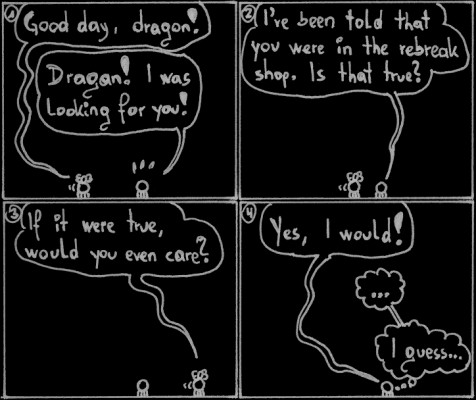 1
Good day, dragon!
Dragan! I was
looking for you!
2
I've been told that
you were in the rebreak
shop. Is that true?
3
If it were true,
would you even care?
4
Yes, I would!
...
I guess...